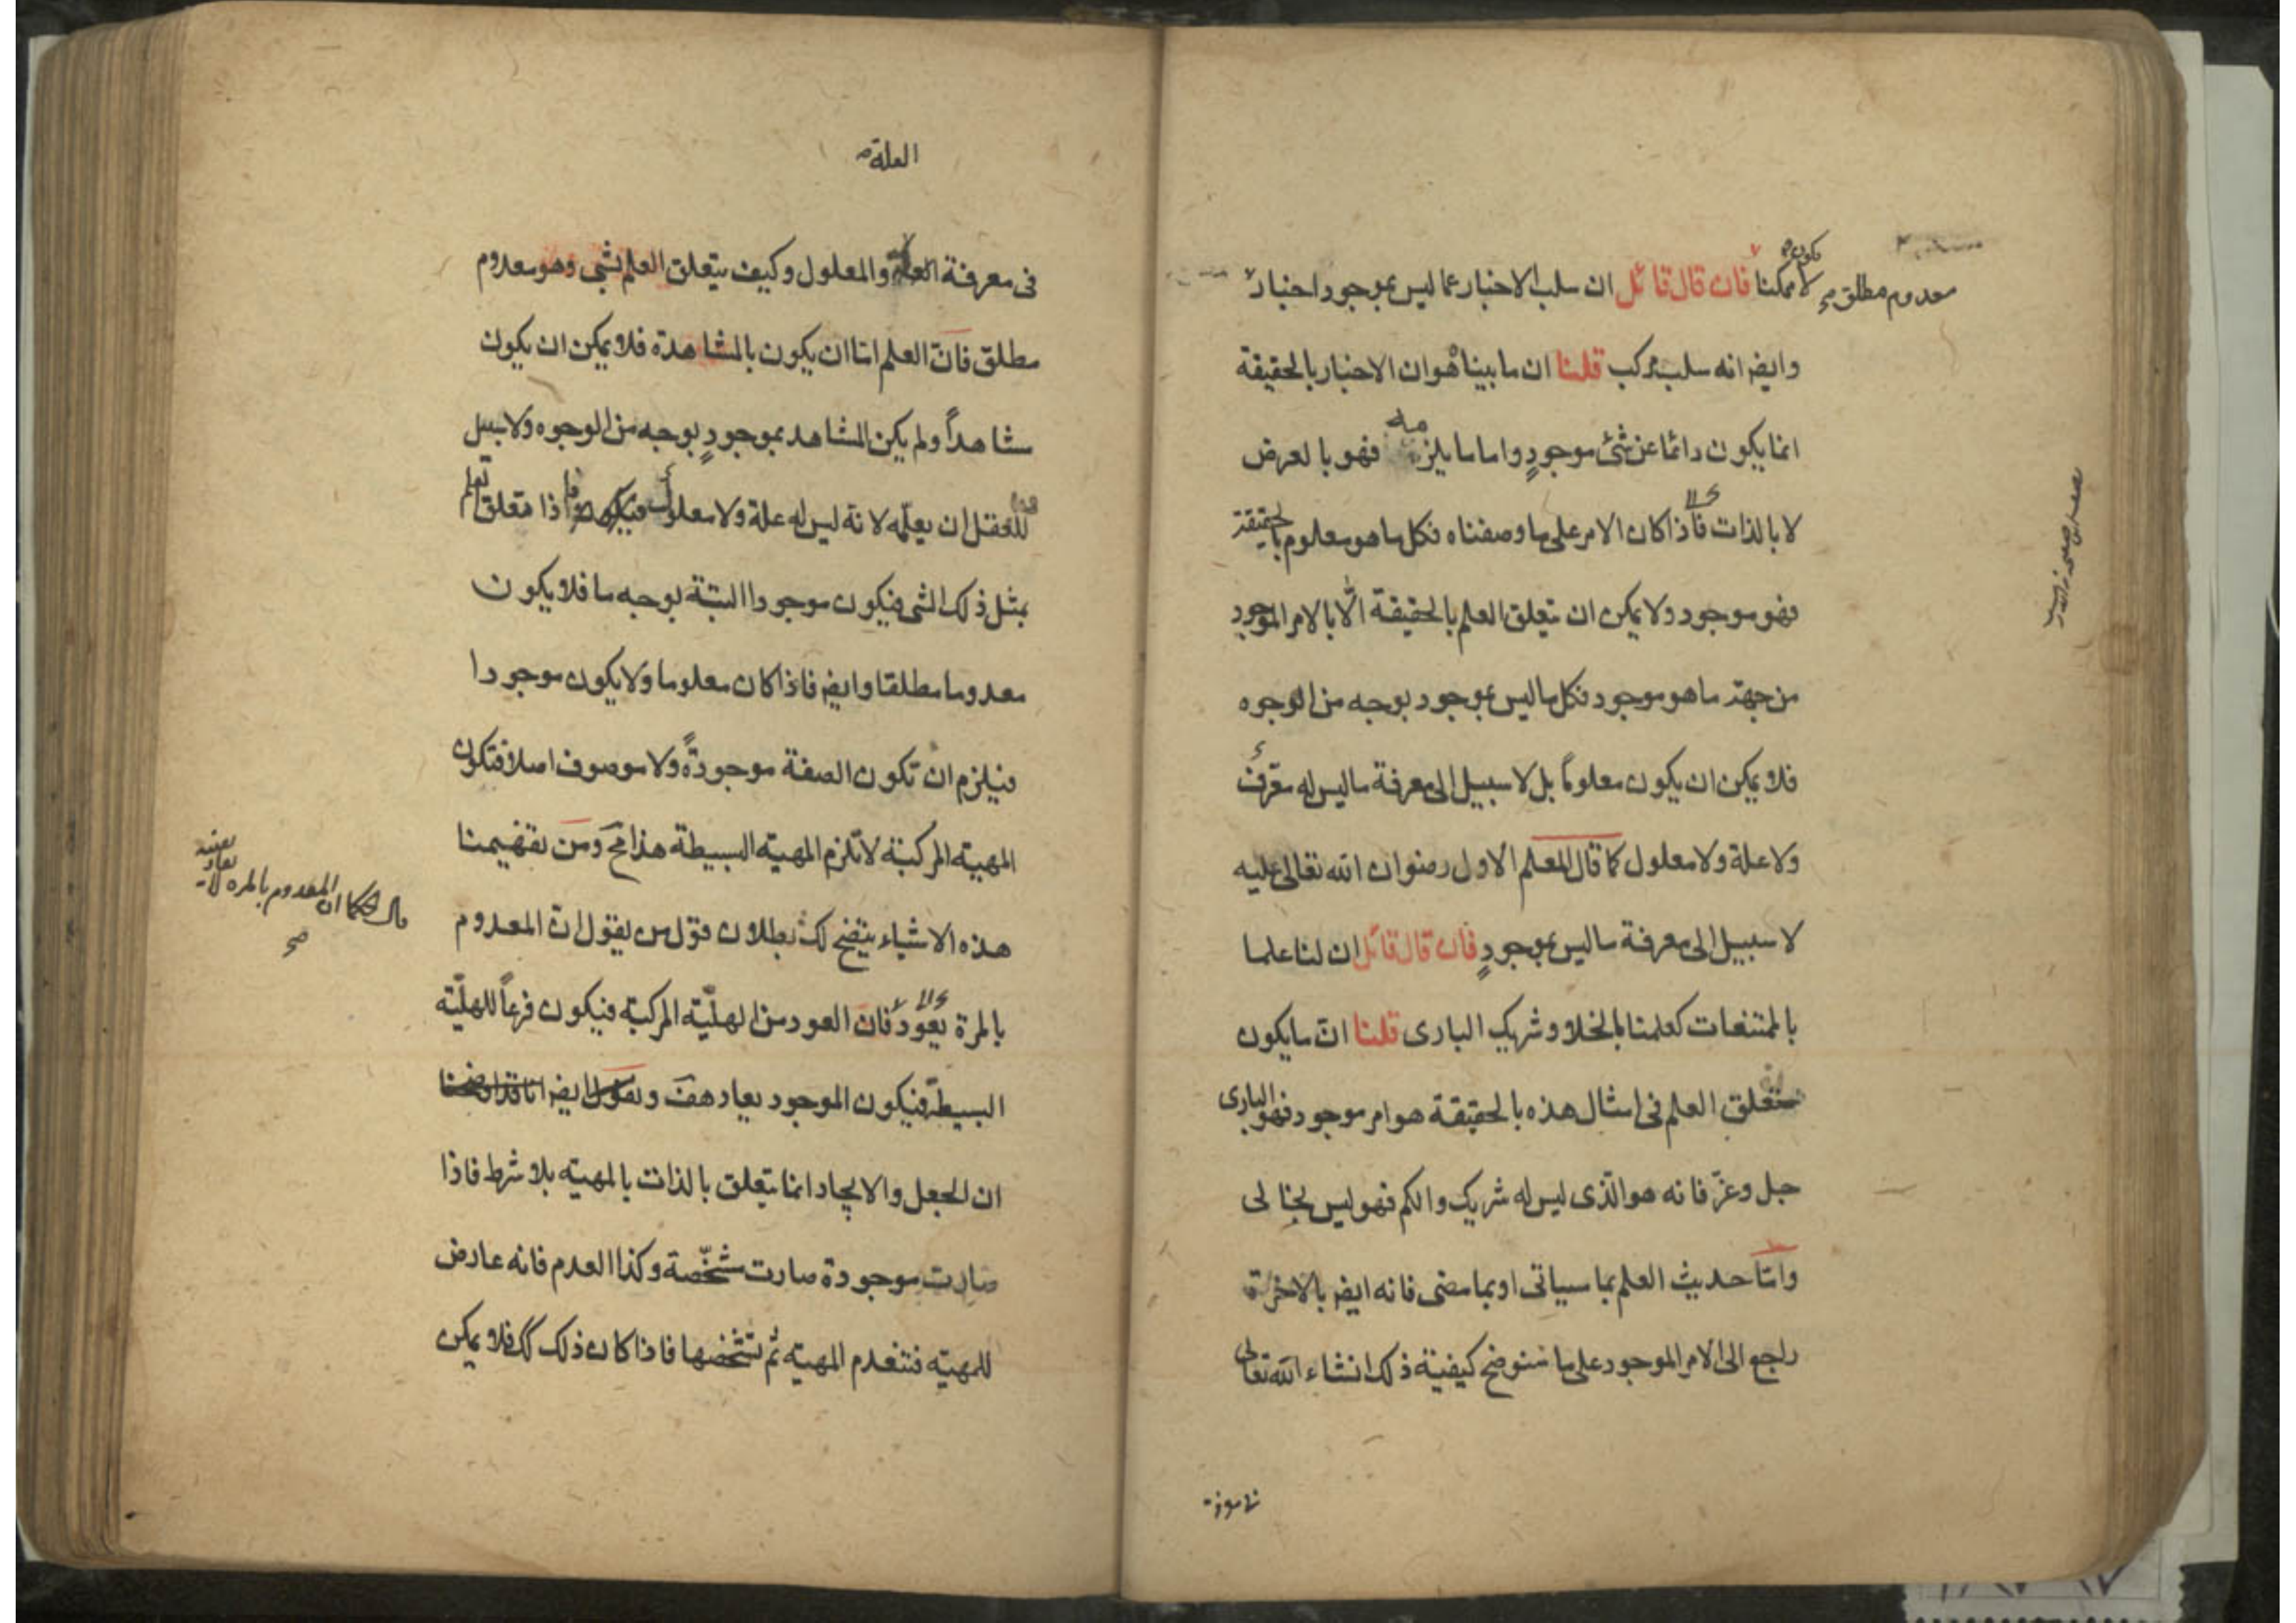 معدوم مطلق صح لا ممكنا فان قال قائل ان سلب الاخبار عما ليس بموجود اخبار
وايضه انه سلب مركب قلنا ان ما بيناه هو ان الاخبار بالحقيقة
انما يكون دائما عن شئ موجودٍ واما ما يلزمه فهو بالعرض
لا بالذات فاذا كان الامر على ما وصفناه فكل ما هو معلوم بالحقيقة
فهو موجود ولا يمكن ان يتعلق العلم بالحقيقة الّا بالامر الموجود
من جهة ما هو موجود فكل ما ليس بموجود بوجه من الوجوه
فلا يمكن ان يكون معلوماً بل لا سبيل الى معرفة ما ليس له معّرف
ولا علة ولا معلول كما قال المعلم الاول رضوان الله تعالى عليه
لا سبيل الى معرفة ما ليس بموجودٍ فان قال قائل ان لنا علما
بالممتنعات كعلمنا بالخلاو شريك البارى قلنا انّ ما يكون
متعلق العلم فى امثال هذه بالحقيقة هو امر موجود فهو البارى
جل وعزّ فانه هو الّذى ليس له شريك والكم فهو ليس بخالى
وامّا حديث العلم بما سياتى او بما مضى فانه ايضه بالاخرة
راجع الى الامر الموجود على ما سنوضح كيفية ذلك انشاء الله تعالى
العلة
فى معرفة العلة والمعلول وكيف يتعلق العلم بشى وهو معدوم
مطلق فانّ العلم امّا ان يكون بالمشاهدة فلا يمكن ان يكون
مشاهداً ولم يكن المشاهد بموجودٍ بوجه من الوجوه ولا سبيل
للعقل ان يعلمه لانه ليس له علة ولا معلول اذا تعلق
بمثل ذلك الشى فيكون موجودا البتة بوجه ما فلا يكون
معدوما مطلقا وايضه فاذا كان معلوما ولا يكون موجودا
فيلزم ان تكون الصفة موجودةً ولا موصوف اصلا فتكون
المهيته المركبة لا تلزم المهيته البسيطة هذا مح ومن تفهيمنا
هذه الاشياء يتضح لك بطلان قول من يقول انّ المعدوم
بالمرة يعود فان العود من الهليّته المركبة فيكون فرعاً للهليّته
البسيطة فيكون الموجود يعاد هف ونقول ايضه انا قد اوضحنا
ان الجعل والايجاد انما يتعلق بالذات بالمهيته بلا شرط فاذا
صارت موجودة صارت متشخّصة وكذا العدم فانه عارض
للمهيته فتنعدم المهيته ثم تشخصها فاذا كان ذلك كك فلا يمكن
قال الحكما ان المعدوم بالمره لا يعاد بعينه
صح